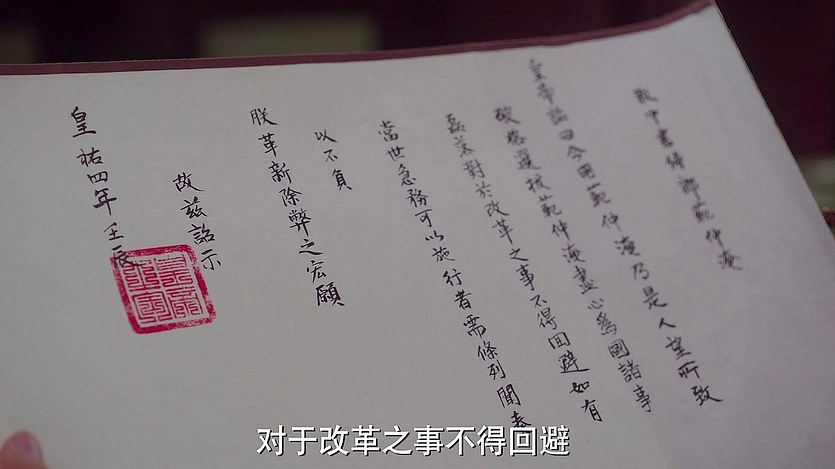 敕中書侍郎範仲淹
皇帝諭曰今因範仲淹乃是人望所致
破格選拔範仲淹盡心爲國諸事
磊落對於改革之事不得回避如有
當世急務可以施行者需條列聞奏
以不負
朕革新除弊之宏願
故兹詔示
皇祐四年壬辰
对于改革之事不得回避